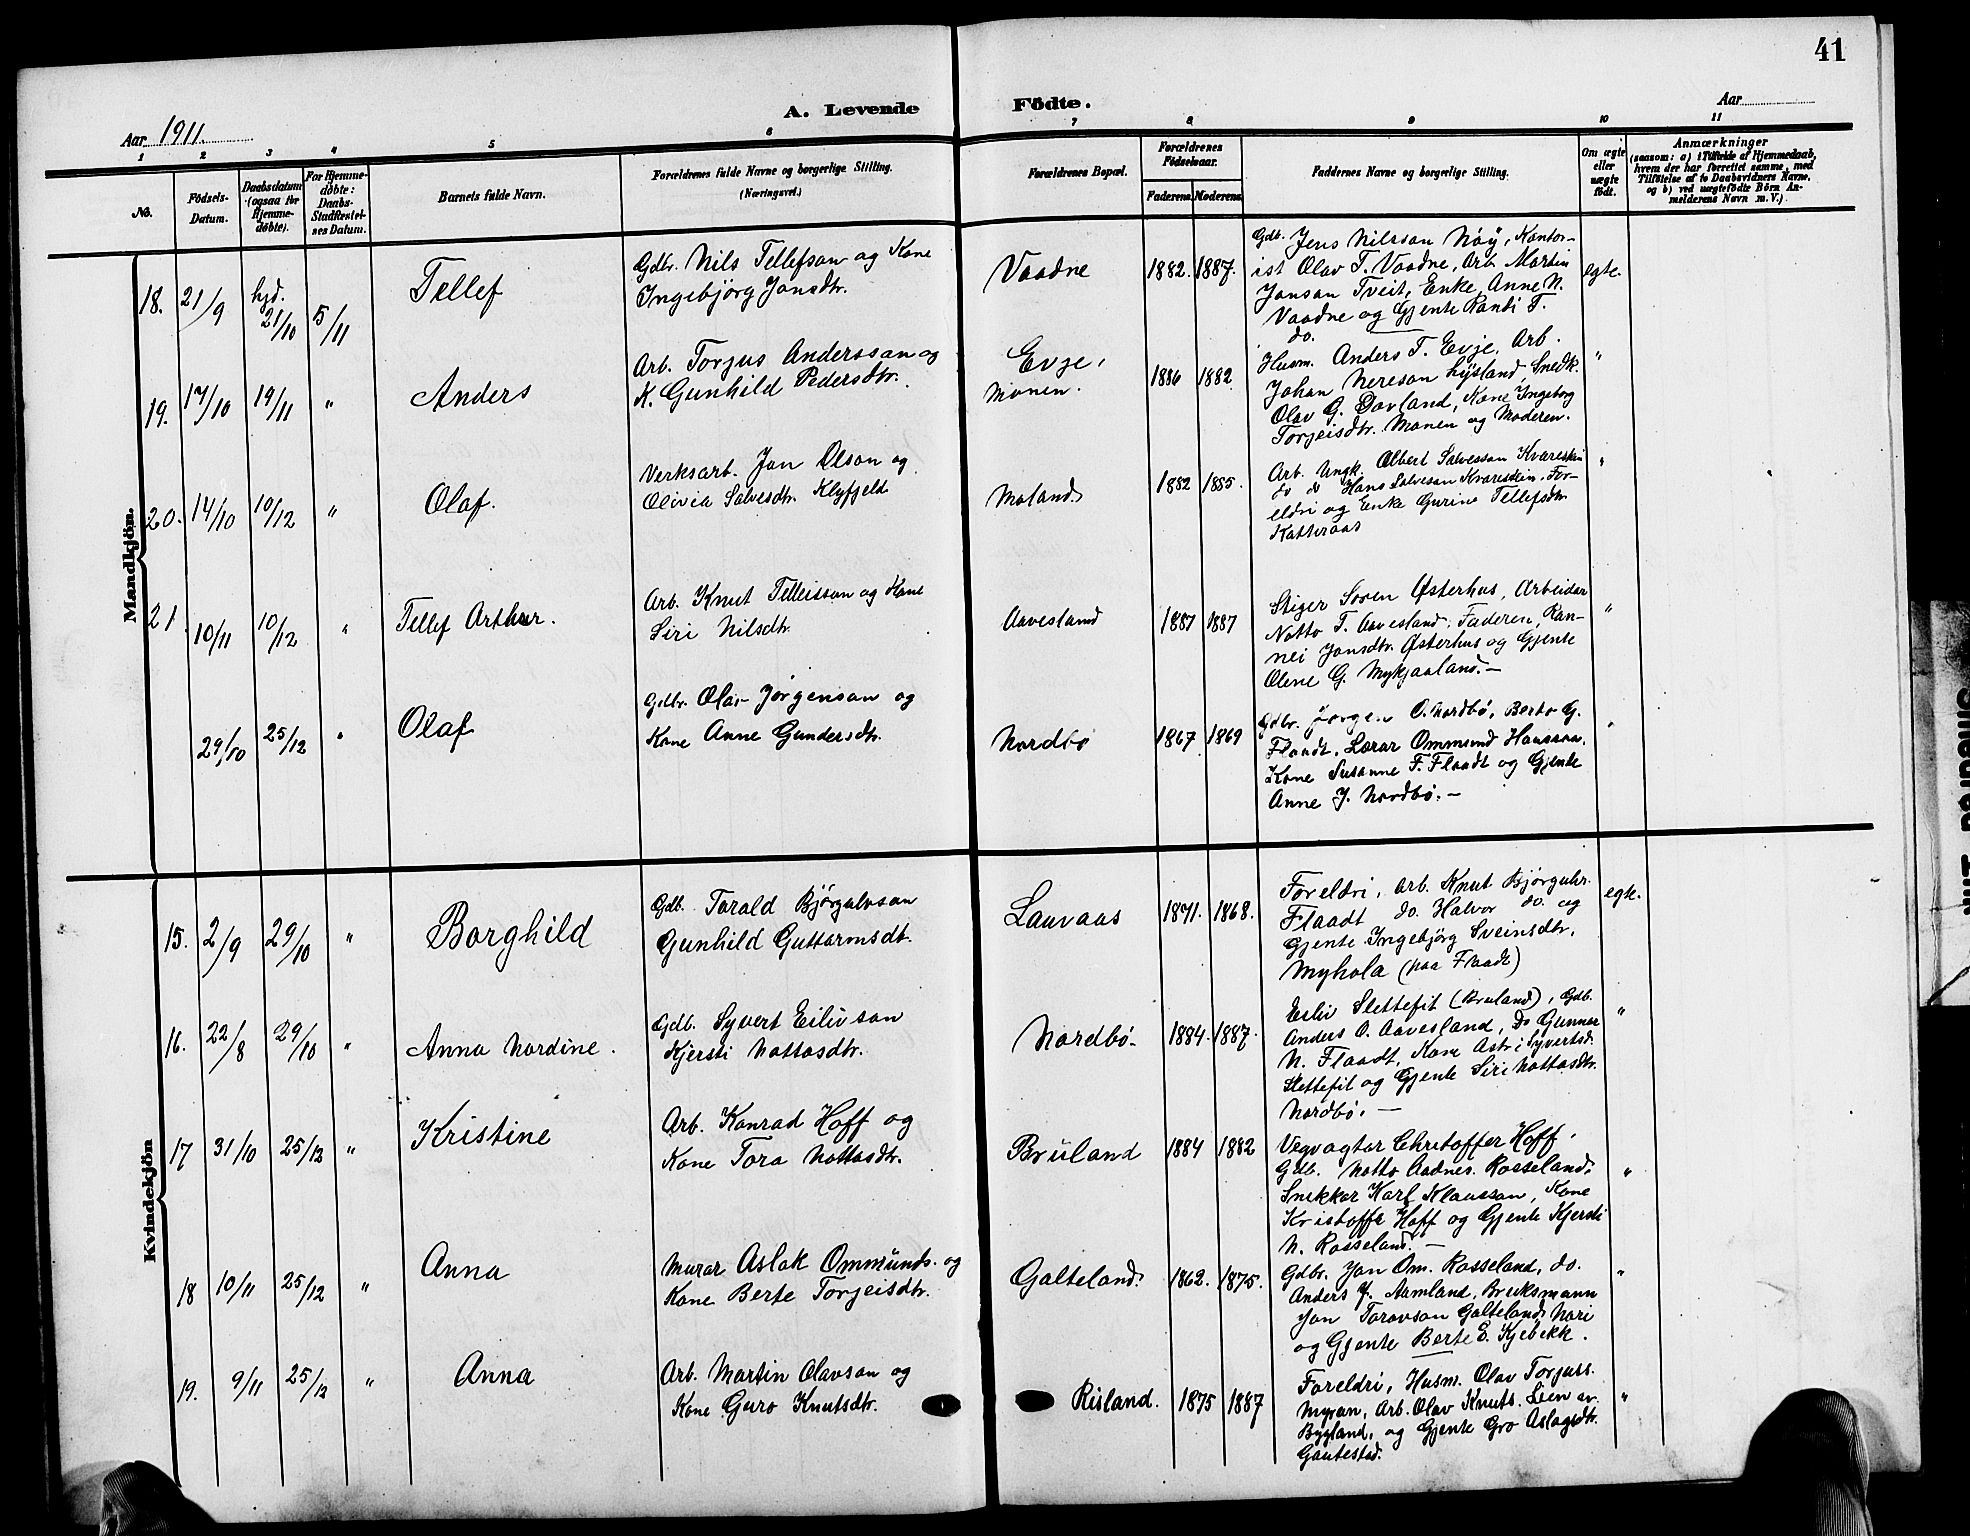 41
A. Levende Födte.
Aar 1911.
Aar
1 2 3 4 5 6 7 8 9 10 11
No.
Födsels-
Datum.
Daabsdatum
(ogsaa for
Hjemme-
døbte).
For Hjemme-
døbte:
Daabs-
Stadfæstel-
ses Datum.
Barnets fulde Navn.
Forældrenes fulde Navne og borgerlige Stilling.
(Næringsvei.)
Forældrenes Bopæl.
Forældrenes
Födselsaar.
Faderens. Moderens.
Faddernes Navne og borgerlige Stilling.
Om ægte
eller
uægte
födt.
Anmærkninger
(saasom: a) i Tilfælde af Hjemmedaab,
hvem der har forrettet samme, med
Tilföielse af to Daabsvidners Navne,
og b) ved uægtefödte Börn An-
melderens Navn m. V.)
Mandkjön.
18. 21/9 hjd. 21/10 5/11 Tellef
Gdbr. Nils Tellefson og Kone
Ingebjörg Jonsdtr.
Vaadne 1882. 1887.
Gdb. Jens Nilsson Nöy, Kontor-
ist Olav T. Vaadne, Arb. Martin
Jonson Tveit, Enke Anne N.
Vaadne og Gjente Randi T.
do.
egte.
19. 17/10 19/11 " Anders
Arb. Torgus Andersson og
K. Gunhild Pedersdtr.
Evje,
Monen. 1886 1882
Husm. Anders T. Evje, Arb.
Johan Nereson Lysland Snedk.
Olav G. Dovland, Kone Ingeborg
Torjeisdtr. Monen og Moderen.
"
20. 14/10 10/12 " Olaf.
Verksarb. Jon Olson og
Olivia Salvesdtr. Klyfjeld
Moland 1882 1885.
Arb. Ungk. Albert Salvesson Kvarestein
do do Hans Salveson Kvarestein, For-
eldri og Enke Gurine Tellefsdtr.
Katteraas
"
21 10/11 10/12 " Tellef Arthur.
Arb. Knut Telleisson og Kone
Siri Nilsdtr.
Aavesland 1887 1887
Stiger Soren Østerhus, Arbeidar
Notto T. Aavesland, Faderen, Ran-
nei Jonsdtr. Østerhus og Gjente
Olene G. Mykjaaland. —
"
29/10 25/12 " Olaf
Gdbr. Olav Jørgenson og
Kone Anne Gundersdtr.
Nordbø 1867 1869
Gdbr. Jørgen O. Nordbø, Berto G.
Flaadt, Lærar Ommund Hansson,
Kone Susanne F. Flaadt og Gjente
Anne J. Nordbø. —
"
Kvindekjön
15. 2/9 29/10 " Borghild
Gdb. Torald Bjørgulvson
Gunhild Guttormsdt.
Lauvaas 1871. 1868.
Foreldri, Arb. Knut Bjørgulvs.
Flaadt do. Halvor do. og
Gjente Ingebjörg Sveinsdtr.
Myhola (paa Flaadt)
egte.
16. 22/8 29/10 " Anna Nordine.
Gdb. Syvert Eilivson
Kjersti Nottosdtr.
Nordbø. 1884. 1887.
Eiliv Slettefit (Bruland), Gdb.
Anders O. Aavesland, Do Gunnar
N. Flaadt, Kone Astri Syvertsd.
Slettefit og Gjente Siri Nottosdtr.
Nordbø. —
"
17 31/10 25/12 " Kristine
Arb. Konrad Hoff og
Kone Tora Nottosdtr.
Bruland 1884 1882
Vegvogter Christoffer Hoff.
Gdb. Notto Aadnes. Rosseland,
Snikkar Karl Klausson, Kone
Kristoffer Hoff og Gjente Kjersti
N. Rosseland. —
"
18 10/11 25/12 " Anna
Murar Aslak Ommunds. og
Kone Berte Torjeisdtr.
Galteland. 1862. 1875.
Gdbr. Jon Om. Rosseland, do.
Anders J. Aamland, Bruksmann
Jon Toravson Galteland, Nori
og Gjente Berte E. Kjebekk.
"
19. 9/11 25/12 " Anna
Arb. Martin Olavson og
Kone Guro Knutsdtr.
Risland. 1875 1887
Foreldri, Husm. Olav Torjuss.
Myran, Arb. Olav Knuts. Lien av
Bygland, og Gjente Gro Aslagsdtr.
Gautestad.
"